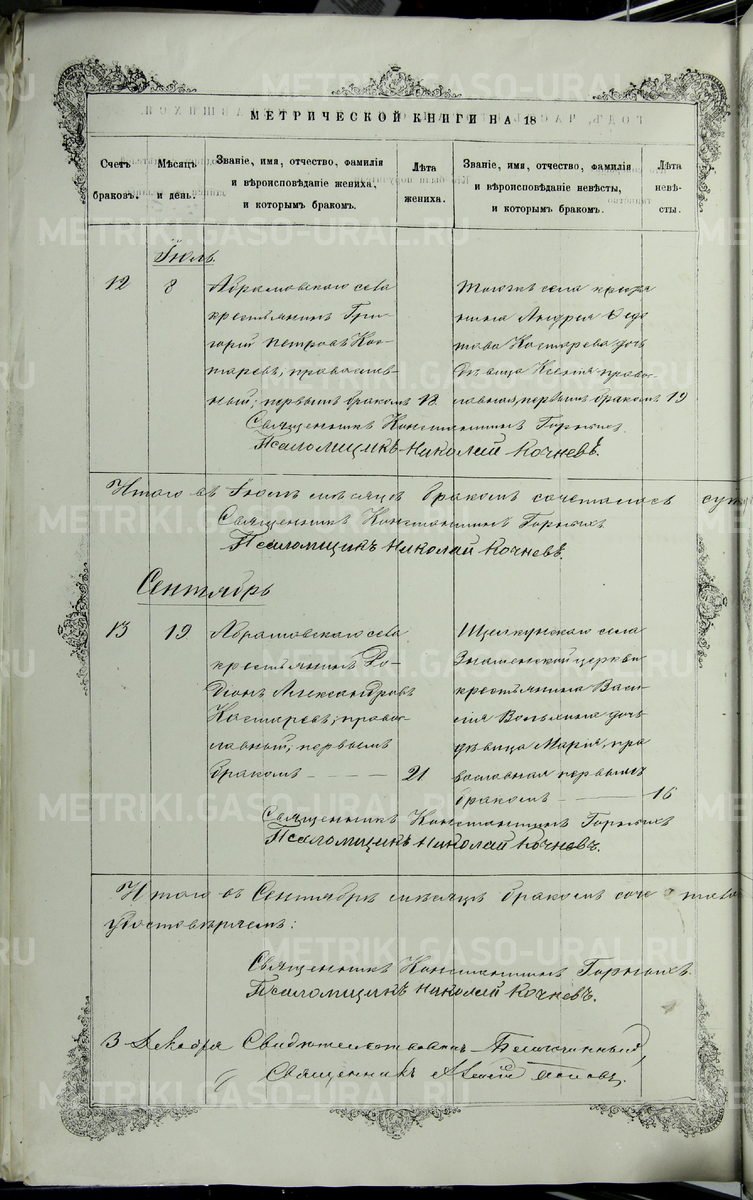 МЕТРИЧЕСКОЙ КНИГИ НА 18
Счетъ браковъ.
Мѣсяцъ и день.
Званіе, имя, отчество, фамилія и вѣроисповѣданіе жениха, и которымъ бракомъ.
Лѣта жениха.
Званіе, имя, отчество, фамилія и вѣроисповѣданіе невѣсты, и которымъ бракомъ.
Лѣта невѣсты.
Іюль
12 8
Абрамовскаго села
крестьянинъ Гри-
горій Петровъ Кос-
таревъ, православ-
ный, первымъ бракомъ 18
Тогожъ села крестья
нина Андрея Ѳедо
това Костарева дочь
дѣвица Ксенія право-
славная, первымъ бракомъ 19
Священникъ Константинъ Горныхъ
Псаломщикъ Николай Кочневъ.
Итого въ Іюлѣ мѣсяцѣ бракомъ сочеталось
Священникъ Константинъ Горныхъ
Псаломщикъ Николай Кочневъ.
Сентябрь
13 19
Абрамовскаго села
крестьянинъ Ро-
діонъ Александровъ
Костаревъ, право-
славный, первымъ
бракомъ 21
Щелкунскаго села
Знаменской церкви
крестьянина Васи-
лія дочь
дѣвица Марія, пра
вославная первымъ
бракомъ 16
Священникъ Константинъ Горныхъ
Псаломщикъ Николай Кочневъ.
Итого въ Сентябрѣ мѣсяцѣ бракомъ соче
удостовѣряемъ:
Священникъ Константинъ Горныхъ
Псаломщикъ Николай Кочневъ.
3 Декабря Свидѣтельствовалъ Благочинный,
Священникъ Поповъ.
METRIKI.GASO-URAL.RU